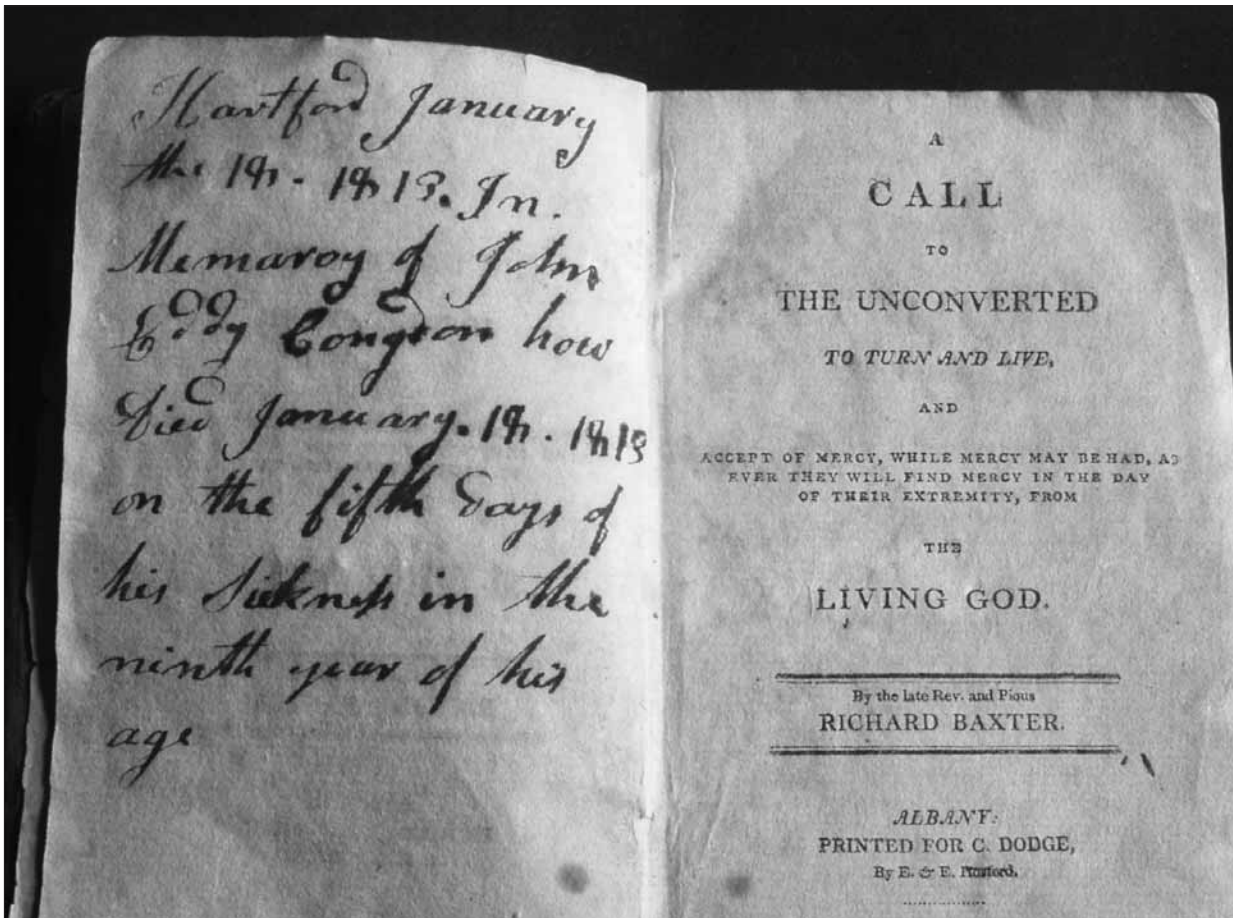 Hartford January
the 18. 1813. In.
Memaroy of John
Eddy Congdon how
Died January. 18. 1813
on the fifth Days of
his Sickness in the
ninth year of his
age
A
CALL
TO
THE UNCONVERTED
TO TURN AND LIVE,
AND
ACCEPT OF MERCY, WHILE MERCY MAY BE HAD, AS
EVER THEY WILL FIND MERCY IN THE DAY
OF THEIR EXTREMITY, FROM
THE
LIVING GOD.
By the late Rev. and Pious
RICHARD BAXTER.
ALBANY:
PRINTED FOR C. DODGE,
By E. & E. Hosford.